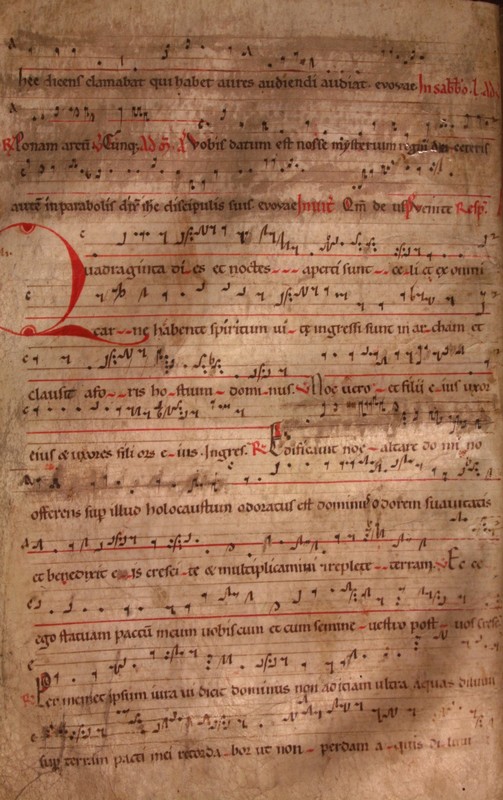 hec dicens clamabat qui habet aures audiendi audiat. evovae In sabbo. l. Ad
R Ponam arcū V Cunq; Ad m̄. A Vobis datum est nosse mysterium regni dei ceteris
autē in parabolis dix̄ ihc discipulis suis. evovae Inuit Qm̄ de us P Venite Resp.
Quadraginta di es et noctes aperti sunt celi et ex omni
car ne habente spiritum vi te ingressi sunt in archam et
clausit afo ris hostium dominus. V Noe vero et filii eius uxor
eius et uxores filiors eius. Ingres. R Edificauit noe altare domino
offerens sup illud holocaustum odoratus est dominus odorem suauitatis
et benedixit eis cresci te et multiplicamini et replete terram. V Ecce
ego statuam pactū meum uobiscum et cum semine vestro post vos Cresc
R Per memet ipsum iuraui dicit dominus non adiciam ultra aquas diluuii
sup terram pacti mei recorda bor ut non perdam aquis diluuii